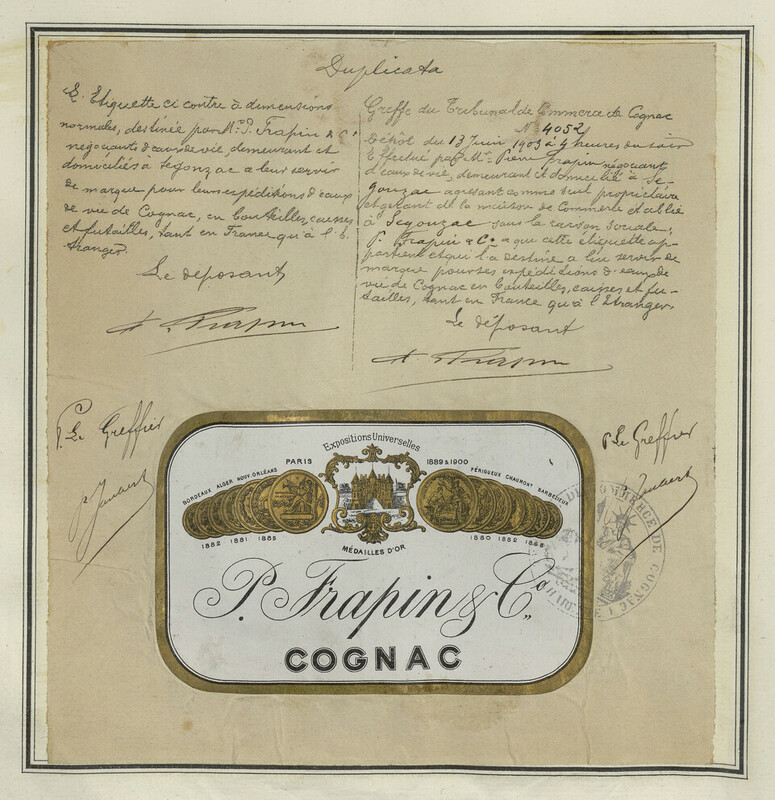 Duplicata
L'Etiquette ci contre à dimensions
normales, destinée par Mr. P. Frapin & Cie
négociants d'eaux de vie, demeurant et
domiciliés à Segonzac a leur servir
de marque pour leurs expéditions d'eaux
de vie de Cognac, en bouteilles, caisses
et futailles, tant en France qu'à l'é-
tranger.
Le déposant
P. Frapin
Greffe du Tribunal de Commerce de Cognac
N° 4052
Dépôt du 13 Juin 1903 à 4 heures du soir
Effectué par Mr Pierre Frapin négociant
d'eaux de vie, demeurant et domicilié à Se-
gonzac agissant comme seul propriétaire
et gérant de la maison de Commerce établie
à Segonzac sous la raison sociale,
P. Frapin & Co. a que cette étiquette ap-
partient et qui l'a destiné a lui servir de
marque pour ses expéditions d'eaux de
vie de Cognac en bouteilles, caisses et fu-
tailles, tant en France qu'à l'Etranger.
Le déposant
P. Frapin
P. Le Greffier
P. Le Greffier
Expositions Universelles
BORDEAUX ALGER NOUV.-ORLÉANS PARIS
1889 & 1900 PÉRIGUEUX CHAUMONT BARBEZIEUX
1882 1881 1885
1880 1882
MÉDAILLES D'OR
P. Frapin & Co.
COGNAC
DE COMMERCE DE COGNAC